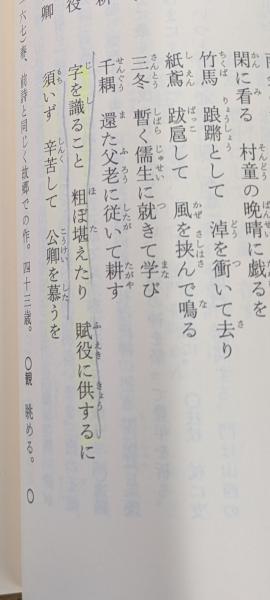 閑に看る 村童の晩晴に戯るを
竹馬 踉蹡として 淖を衝いて去り
紙鳶 跋扈して 風を挟んで鳴る
三冬 暫く儒生に就きて学び
千耦 還た父老に従いて耕す
字を識ること 粗ぼ堪えたり 賦役に供するに
須いず 辛苦して 公卿を慕うを
六七）奏、前詩と同じく故郷での作。四十三歳。 〇観 眺める。 〇